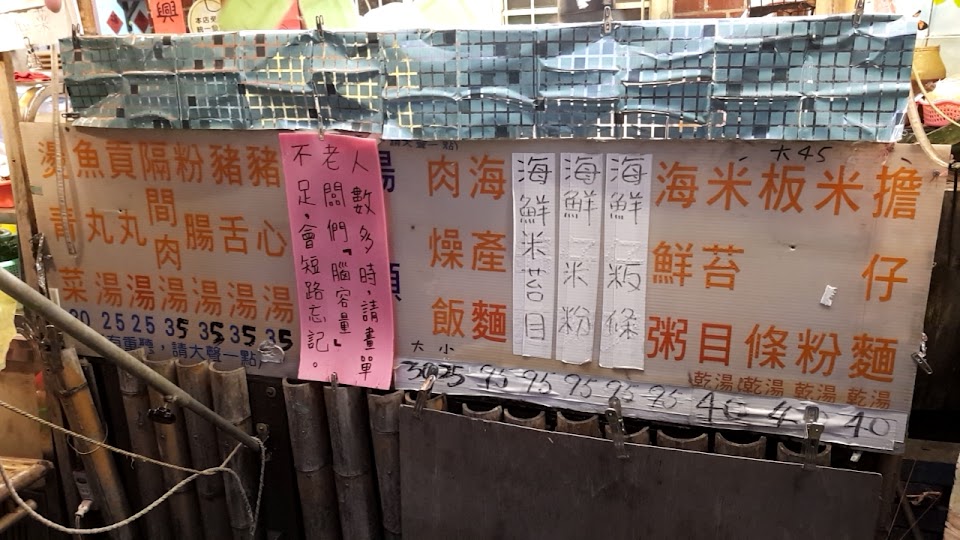 大45
擔仔麵
米粉
板條
米苔目
海鮮粥
海鮮粄條
海鮮米粉
海鮮米苔目
海產麵
肉燥飯
乾湯 乾湯 乾湯 乾湯
大 小
3025 95 95 95 95 95 40 40
湯
請大聲一點)
人數多時,請畫單
老闆們『腦容量』
不足,會短路忘記。
豬心湯
豬舌湯
粉腸湯
隔間肉湯
貢丸湯
魚丸湯
燙青菜
30 25 25 35 35 35 35
有重聽,請大聲一點
興